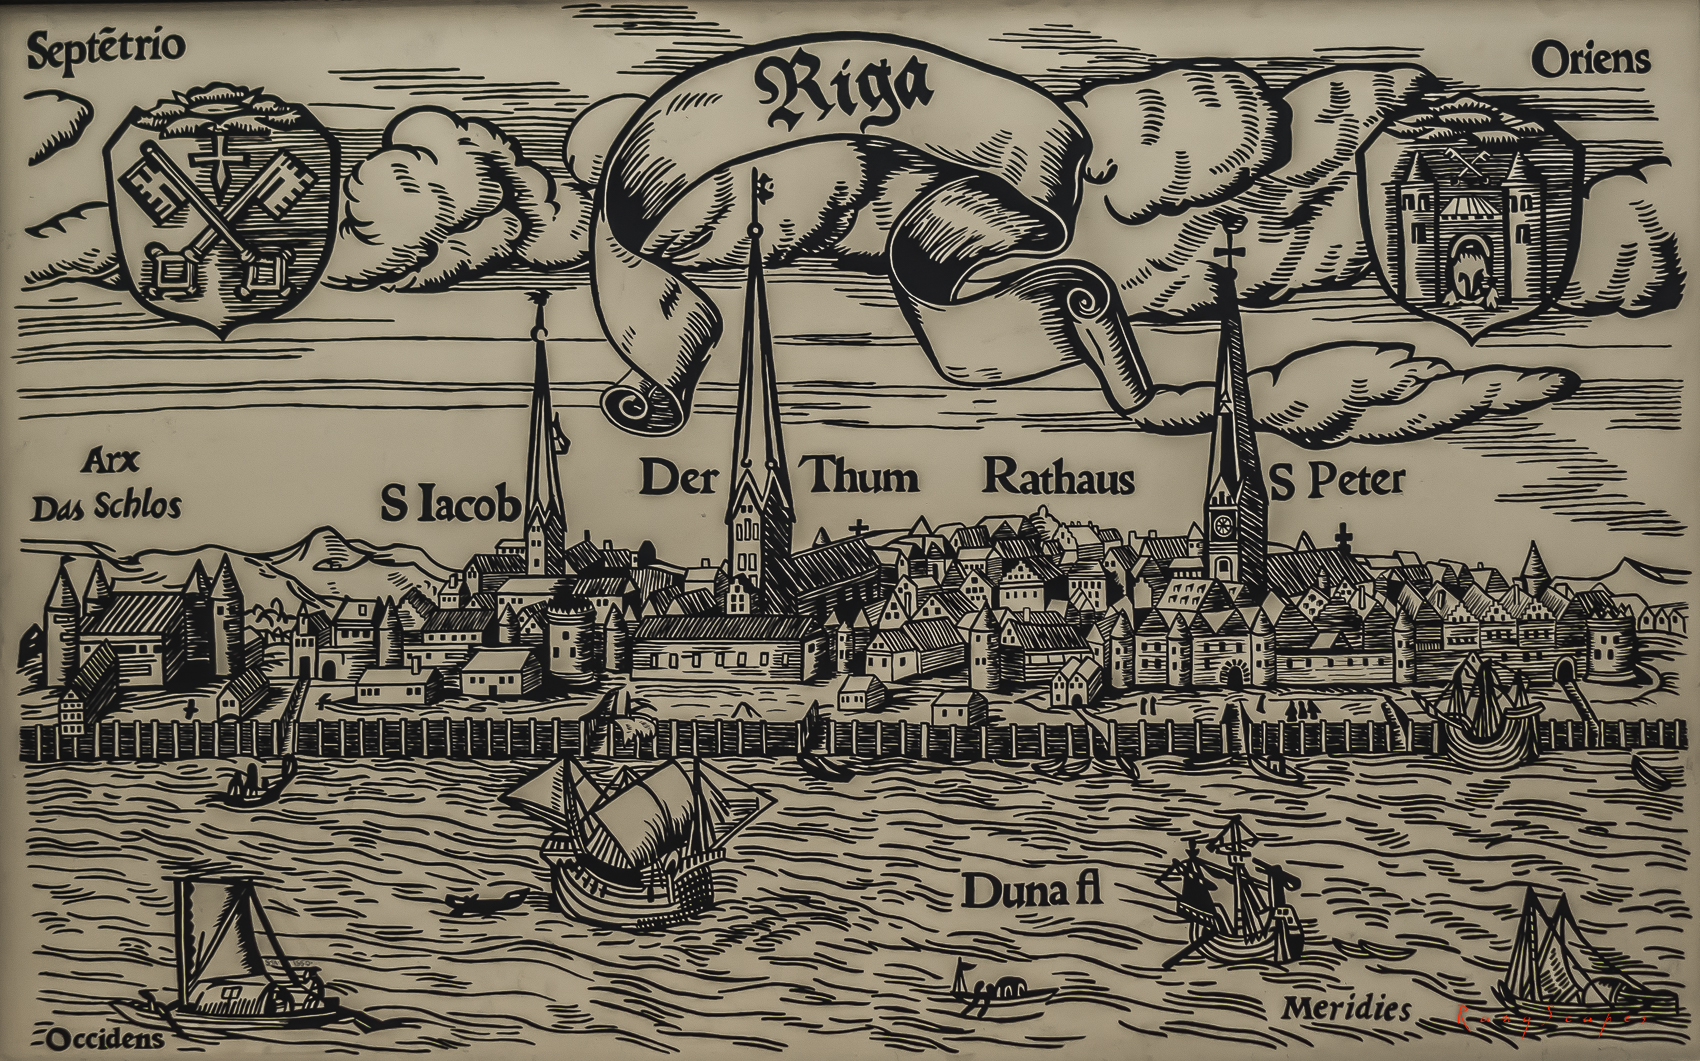 Septẽtrio
Oriens
Riga
Arx
Das Schlos
S Iacob
Der Thum
Rathaus
S Peter
Duna fl
Meridies
Occidens